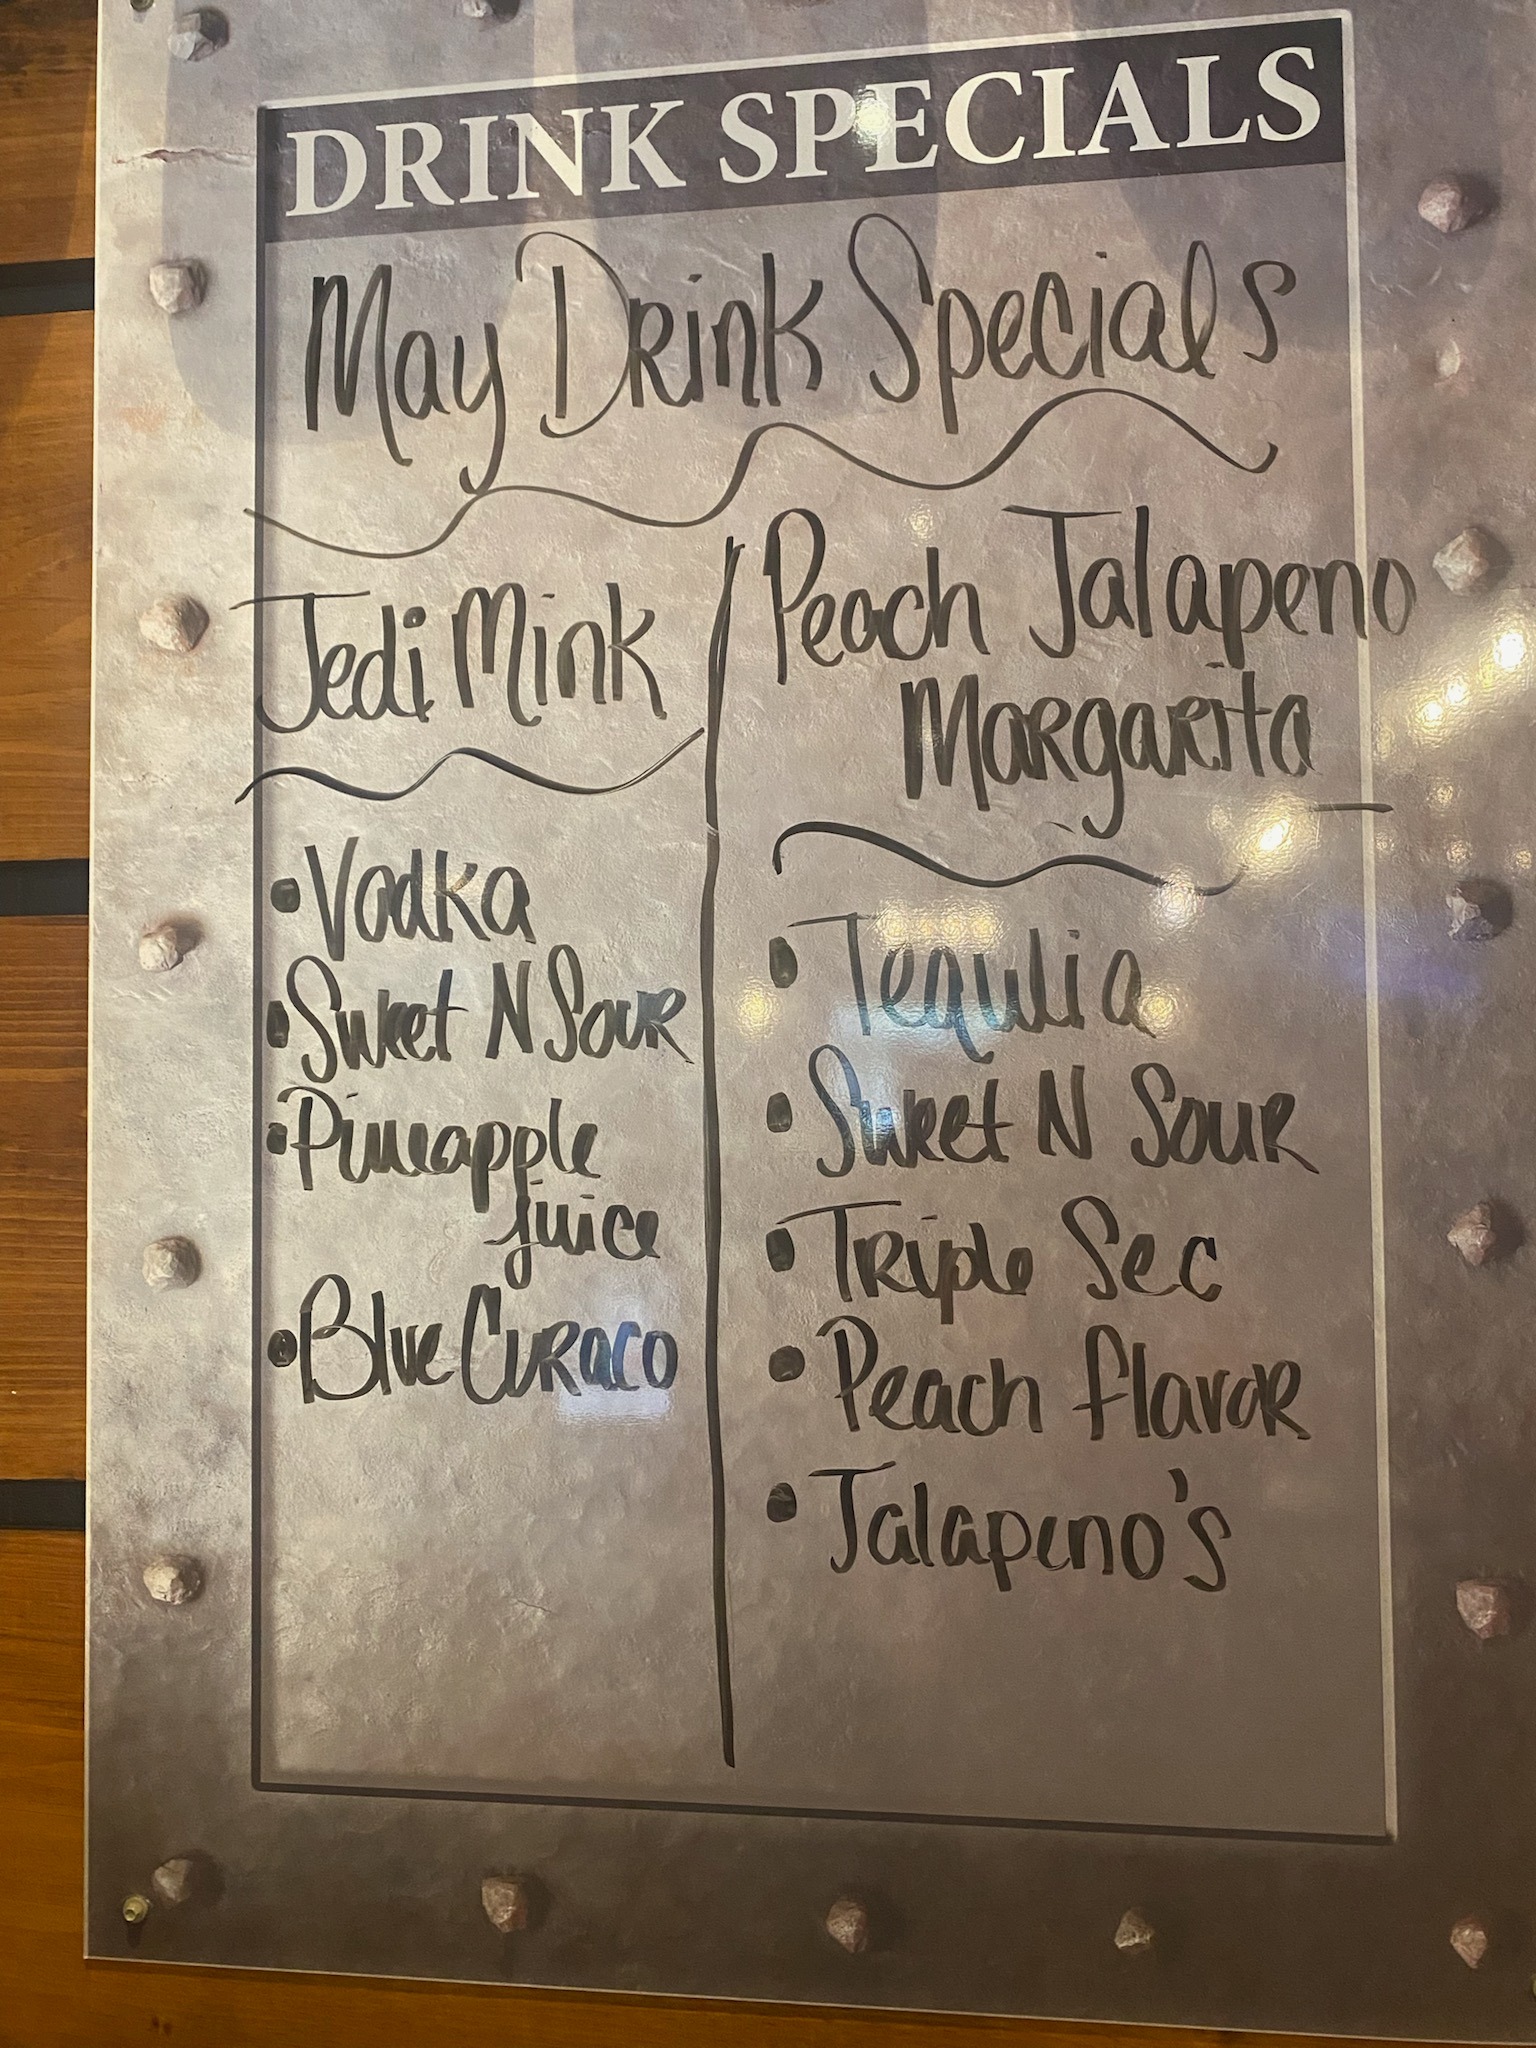 DRINK SPECIALS
May Drink Specials
Jedi Mink
• Vodka
• Sweet N Sour
• Pineapple
juice
• Blue Curaco
Peach Jalapeno
Margarita
• Tequlia
• Sweet N Sour
• Triple Sec
• Peach flavor
• Jalapeno's